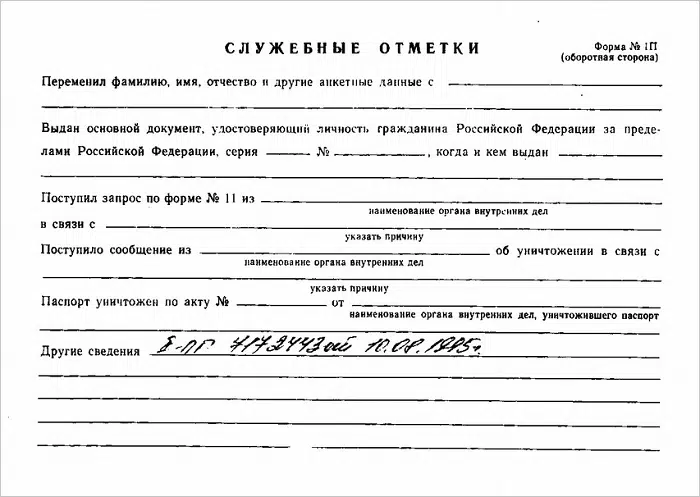 СЛУЖЕБНЫЕ ОТМЕТКИ
Форма № 1П
(оборотная сторона)
Переменил фамилию, имя, отчество и другие анкетные данные с
Выдан основной документ, удостоверяющий личность гражданина Российской Федерации за преде-
лами Российской Федерации, серия № , когда и кем выдан
Поступил запрос по форме № 11 из
наименование органа внутренних дел
в связи с
указать причину
Поступило сообщение из об уничтожении в связи с
наименование органа внутренних дел
указать причину
Паспорт уничтожен по акту № от
наименование органа внутренних дел, уничтожившего паспорт
Другие сведения 7172443 от 10.08.1995г.